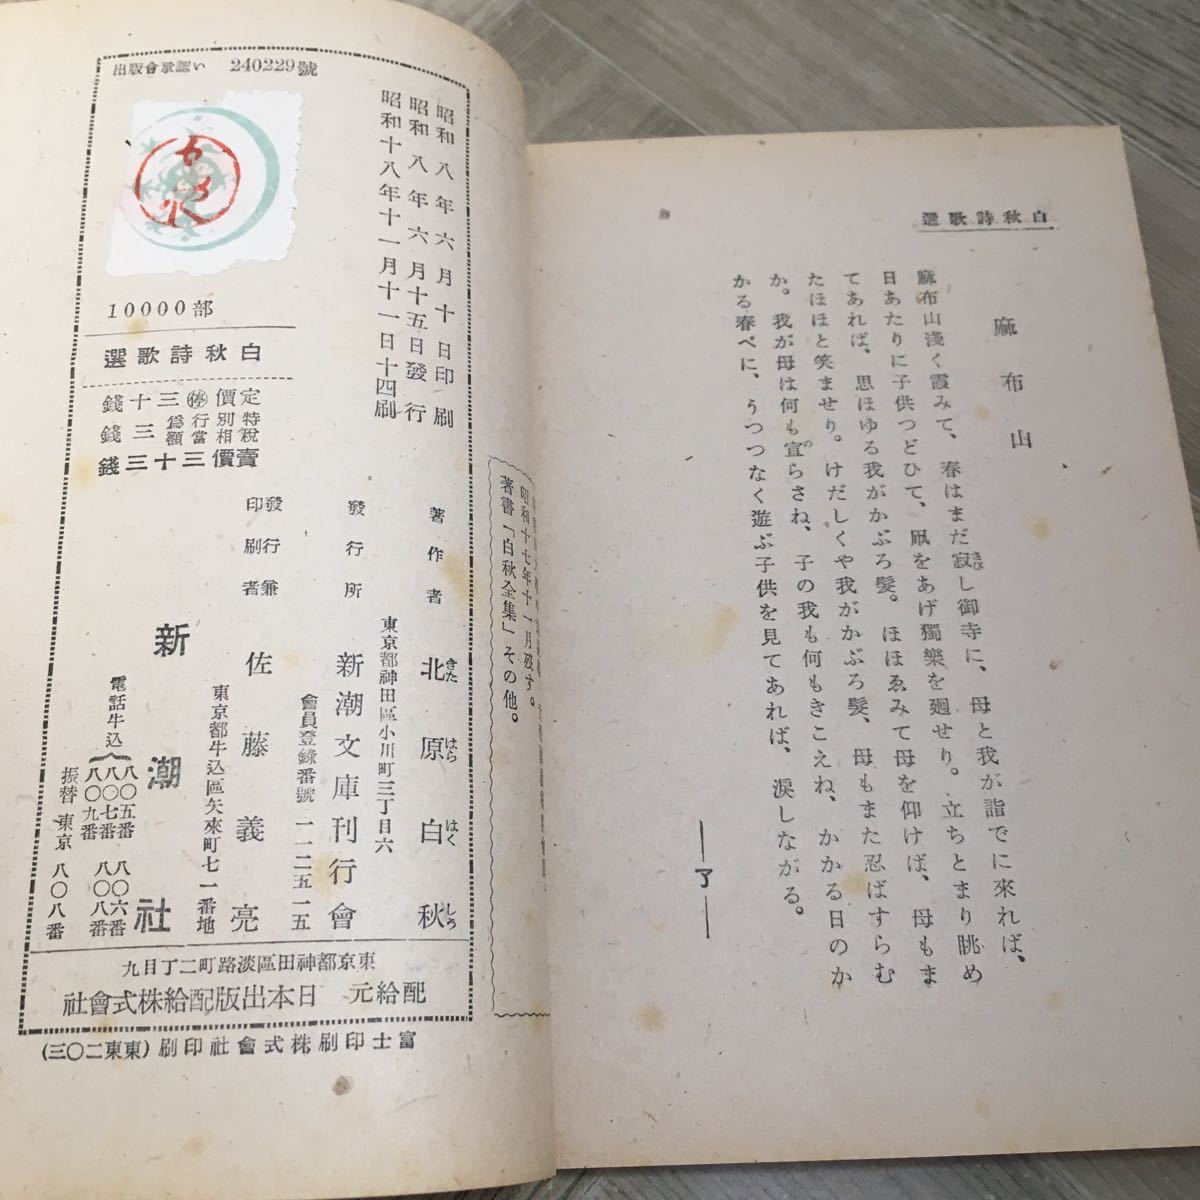 白秋詩歌選
麻布山
麻布山淺く霞みて、春はまだ寂し御寺に、母と我が詣でに來れば、
日あたりに子供つどひて、凧をあげ獨樂を廻せり。立ちとまり眺め
てあれば、思ほゆる我がかぶろ髮。ほほゑみて母を仰げば、母もま
たほほと笑ませり。けだしくや我がかぶろ髮、母もまた忍ばすらむ
か。我が母は何も宣らさね、子の我も何もきこえね、かかる日のか
かる春べに、うつつなく遊ぶ子供を見てあれば、涙しながる。
―了―
昭和十七年十一月歿す。
著書「白秋全集」その他。
出版會承認い 240229號
昭和八年六月十日印刷
昭和八年六月十五日發行
昭和十八年十一月十一日十四刷
10000部
白秋詩歌選
定價㊕三十錢
特別行爲税相當額三錢
賣價三十三錢
著作者 北原白秋
きたはらはくしう
東京都神田區小川町三丁目六
發行所 新潮文庫刊行會
會員登錄番號一一二五一五
發行兼印刷者 佐藤義亮
東京都牛込區矢來町七一番地
新潮社
電話牛込
八〇五番 八〇六番
八〇七番 八〇八番
八〇九番
振替東京八〇八番
東京都神田區淡路町二丁目九
配給元 日本出版配給株式會社
富士印刷株式會社印刷(東東二〇三)